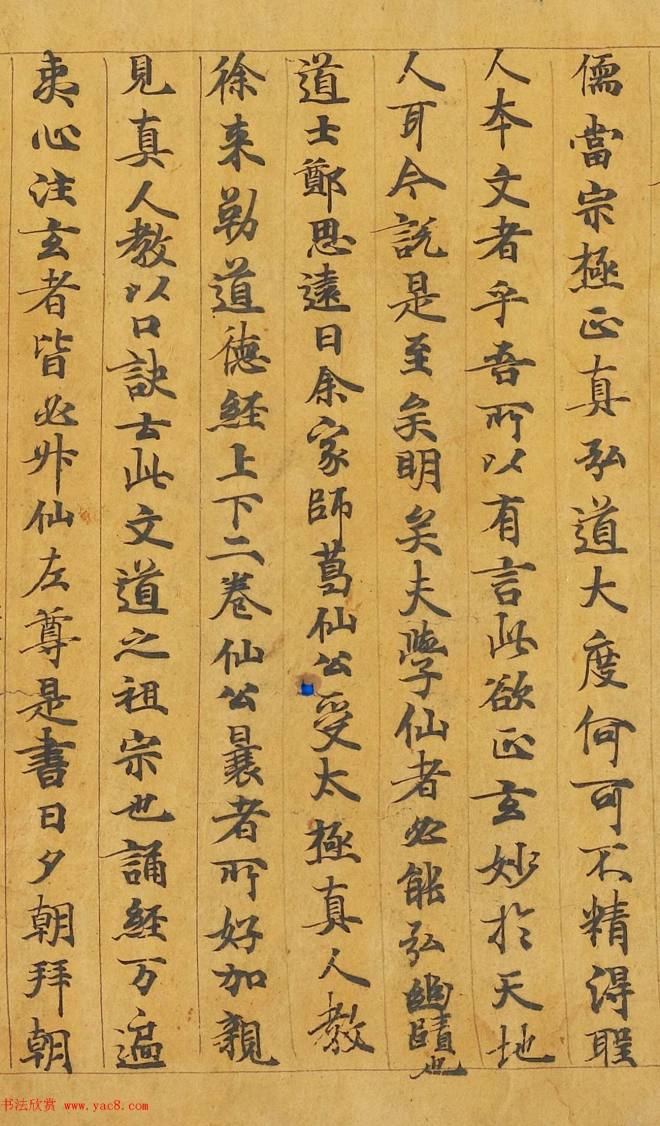 儒當宗極正真弘道大度何可不精得聖
人本文者乎吾所以有言此欲正玄妙於天地
人耳今說是至矣明矣夫學仙者必能弘幽賾也
道士鄭思遠曰余家師葛仙公受太極真人教
徐来勒道德経上下二卷仙公曩者所好加親
見真人教以口訣云此文道之祖宗也誦経万遍
夷心注玄者皆必升仙尤尊是書日夕朝拜朝
书法欣赏 www.yac8.com